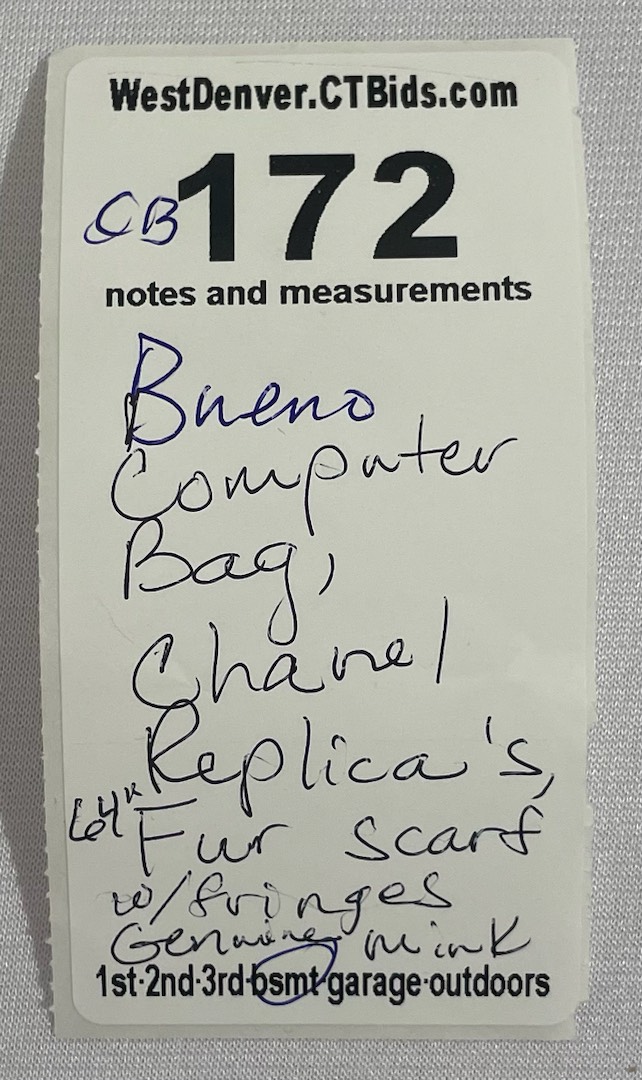 WestDenver.CTBids.com
CB 172
notes and measurements
Bueno
Computer
Bag,
Chanel
Replica's,
64" Fur scarf
w/fringes
Genuine mink
1st·2nd·3rd·bsmt·garage·outdoors